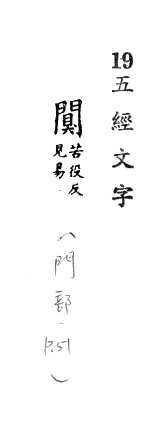 19 五經文字
闃
苦役反
見易
（門部-p.51）